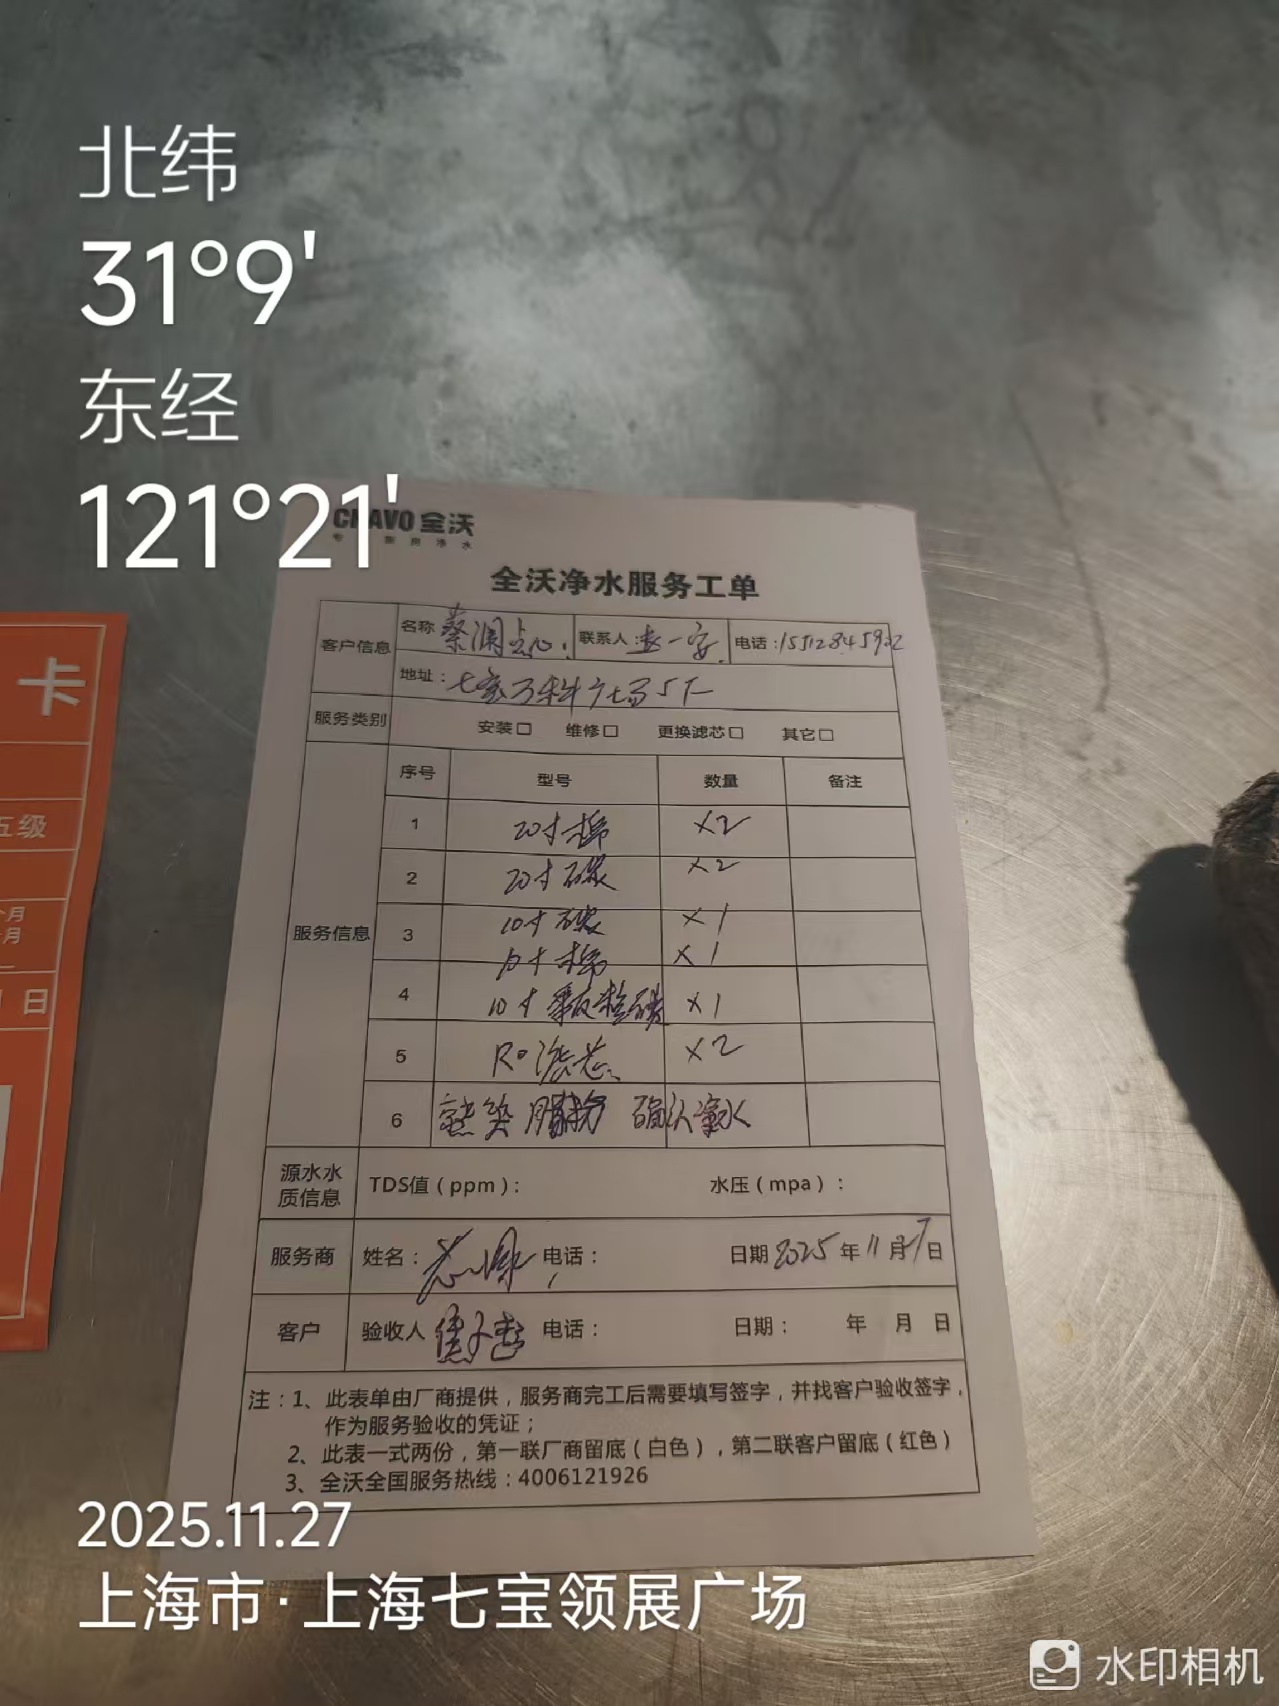 北纬
31°9'
东经
121°21'
CHAVO 全沃
房 净 水
全沃净水服务工单
客户信息 名称 蔡澜点心 联系人: 一 电话:15512845922
地址: 七宝万科广场5F
服务类别 安装□ 维修□ 更换滤芯□ 其它□
服务信息 序号 型号 数量 备注
1 20寸棉 ×2
2 20寸碳 ×2
3 10寸碳 ×1
10寸棉 ×1
4 10寸 碳 ×1
5 Ro滤芯 ×2
6 确认
源水水质信息 TDS值(ppm): 水压(mpa):
服务商 姓名: 电话: 日期 2025 年 11 月 27 日
客户 验收人 电话: 日期: 年 月 日
注:1、此表单由厂商提供,服务商完工后需要填写签字,并找客户验收签字,
作为服务验收的凭证;
2、此表一式两份,第一联厂商留底(白色),第二联客户留底(红色)
3、全沃全国服务热线:4006121926
卡
五级
个月
月
日
2025.11.27
上海市·上海七宝领展广场
水印相机